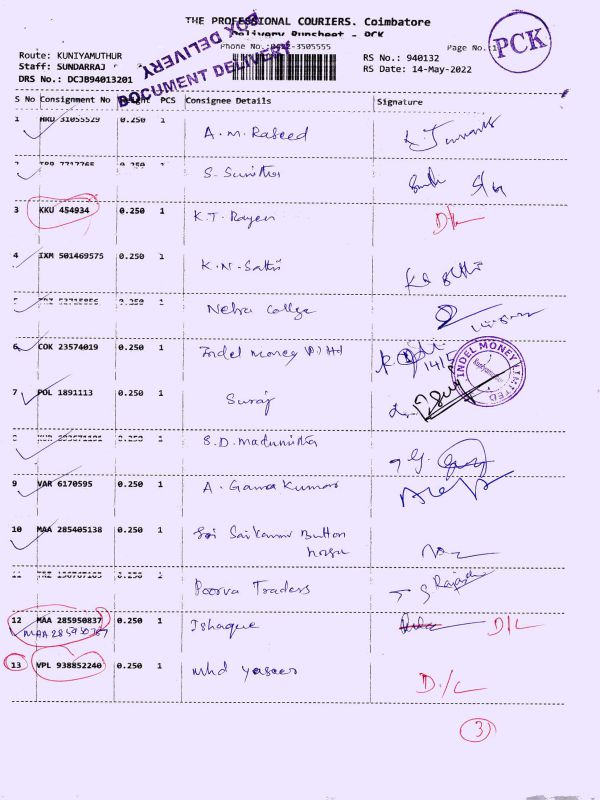 THE PROFESSIONAL COURIERS. Coimbatore
Delivery Runsheet - PCK
DOCUMENT DELIVERY
BOX DELIVERY
PCK
Phone No.:0422-3505555
Page No.:1
Route: KUNIYAMUTHUR
RS No.: 940132
Staff: SUNDARRAJ
RS Date: 14-May-2022
DRS No.: DCJB94013201
S No Consignment No Weight PCS Consignee Details Signature
1 MKU 31055529 0.250 1 A.M. Raseed
2 0.250 1 S. Sunitha
3 KKU 454934 0.250 1 K.T. Rayen D/L
4 IXM 501469575 0.250 1 K.N. Sathi
5 0.250 1 Nehru College
6 COK 23574019 0.250 1 Indel Money (P) Ltd 14/5
INDEL MONEY LIMITED
7 POL 1891113 0.250 1 Suraj
8 0.250 1 S.D. Madumitha
9 VAR 6170595 0.250 1 A. Gama Kumar
10 MAA 285405138 0.250 1 Sri Saikumar Button
House
11 0.250 1 Poorva Traders
12 MAA 285950837 0.250 1 Ishaque D/L
13 VPL 938852240 0.250 1 Mhd Yaseer D/L
3